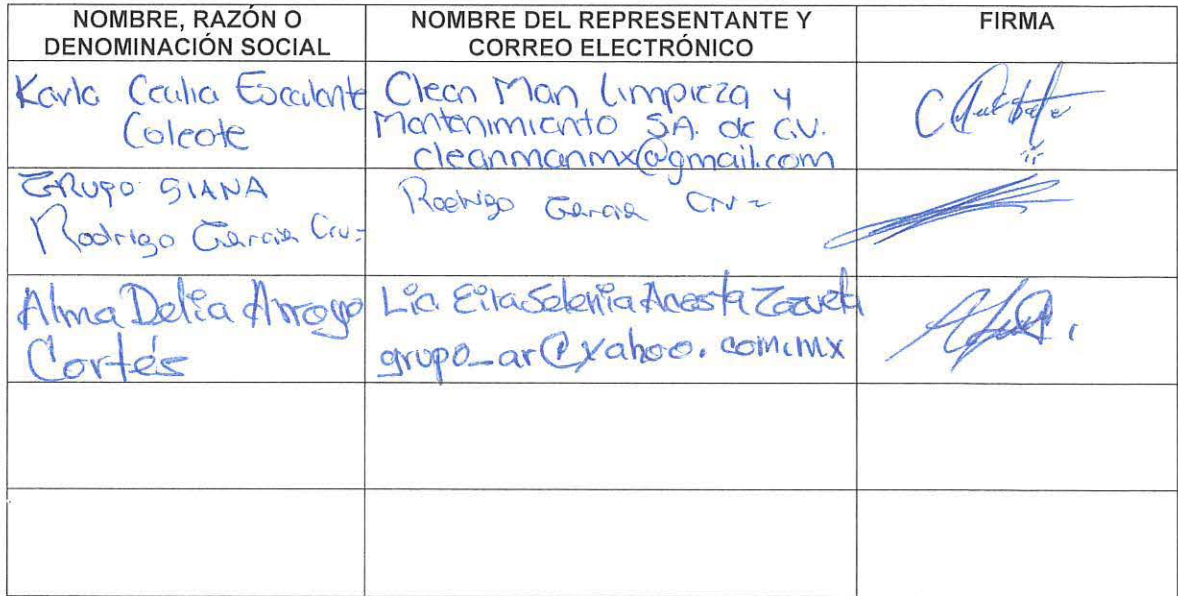 NOMBRE, RAZÓN O
DENOMINACIÓN SOCIAL
NOMBRE DEL REPRESENTANTE Y
CORREO ELECTRÓNICO
FIRMA
Karla Cecilia Escalante
Coleote
Clean Man Limpieza y
Mantenimiento S.A. de C.V.
cleanmanmx@gmail.com
GRUPO SIANA
Rodrigo Garcia Cruz
Rodrigo Garcia Cruz
Alma Delia Arroyo
Cortés
Lic. Eila Selenia Acosta Zazueta
grupo_ar@yahoo.com.mx